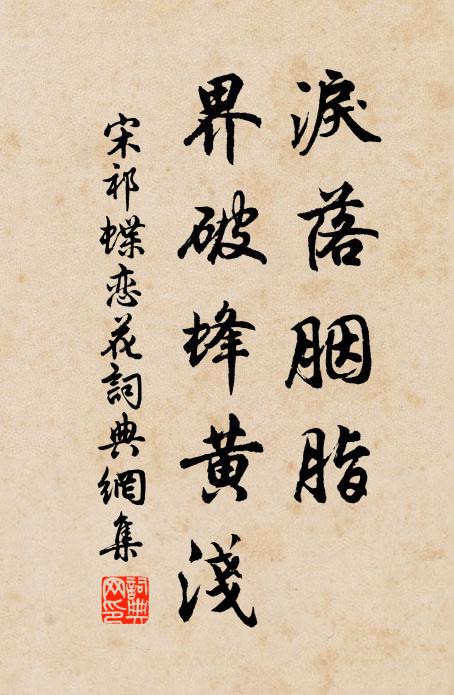 淚落胭脂
界破蜂黃淺
宋祁蝶恋花詞典網集
詞典网印